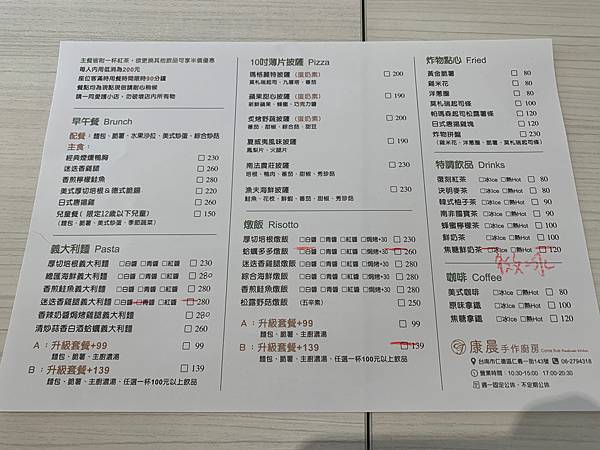 主餐皆附一杯紅茶、欲更換其他飲品可享半價優惠
每人內用低消為200元
座位客滿時用餐時間限時90分鐘
餐點均為現點現做請耐心稍候
請一同愛護小店，勿破壞店內所有物
早午餐 Brunch
配餐：麵包、脆薯、水果沙拉、美式炒蛋、綜合炒菇
主食：
經典煙燻鴨胸 □ 230
迷迭香雞腿 □ 260
香煎檸檬鮭魚 □ 280
美式厚切培根&德式脆腸 □ 220
日式唐揚雞 □ 260
兒童餐(限定12歲以下兒童) □ 150
(麵包、脆薯、美式炒蛋、季節蔬菜)
義大利麵 Pasta
厚切培根義大利麵 □白醬 □青醬 □紅醬 □ 230
總匯海鮮義大利麵 □白醬 □青醬 □紅醬 □ 280
香煎鮭魚義大利麵 □白醬 □青醬 □紅醬 □ 260
迷迭香雞腿義大利麵 □白醬 □青醬 □紅醬 □ 280
香辣奶醬焗烤雞腿義大利麵 □ 280
清炒蒜香白酒蛤蠣義大利麵 □ 260
A：升級套餐+99 □ 99
麵包、脆薯、主廚濃湯
B：升級套餐+139 □ 139
麵包、脆薯、主廚濃湯、任選一杯100元以上飲品
10吋薄片披薩 Pizza
瑪格麗特披薩 (蛋奶素) □ 200
莫札瑞起司、九層塔、番茄
蘋果甜心披薩 (蛋奶素) □ 190
新鮮蘋果、蜂蜜、巧克力醬
炙烤野蔬披薩 (蛋奶素) □ 200
番茄、甜椒、綜合菇、甜豆
夏威夷風味披薩 □ 190
鳳梨片、火腿片
南法農莊披薩 □ 200
培根、鴨肉、番茄、甜椒、秀珍菇
漁夫海鮮披薩 □ 230
鮭魚、花枝、鮮蝦、番茄、甜椒、秀珍菇
燉飯 Risotto
厚切培根燉飯 □白醬 □青醬 □紅醬 □焗烤+30 □ 230
蛤蠣多多燉飯 □白醬 □青醬 □紅醬 □焗烤+30 □ 260
迷迭香雞腿燉飯 □白醬 □青醬 □紅醬 □焗烤+30 □ 280
綜合海鮮燉飯 □白醬 □青醬 □紅醬 □焗烤+30 □ 280
香煎鮭魚燉飯 □白醬 □青醬 □紅醬 □焗烤+30 □ 280
松露野菇燉飯 (五辛素) □ 250
A：升級套餐+99 □ 99
麵包、脆薯、主廚濃湯
B：升級套餐+139 □ 139
麵包、脆薯、主廚濃湯、任選一杯100元以上飲品
炸物點心 Fried
黃金脆薯 □ 80
雞米花 □ 80
洋蔥圈 □ 80
莫札瑞起司條 □ 80
帕瑪森起司松露薯條 □ 100
日式唐揚雞塊 □ 120
炸物拼盤 □ 230
(雞米花、洋蔥圈、脆薯、莫札瑞起司條)
特調飲品 Drinks
復刻紅茶 □冰Ice □熱Hot □ 80
決明麥茶 □冰Ice □熱Hot □ 80
韓式柚子茶 □冰Ice □熱Hot □ 90
南非國寶茶 □冰Ice □熱Hot □ 90
蜂蜜檸檬茶 □冰Ice □熱Hot □ 100
鮮奶茶 □冰Ice □熱Hot □ 100
焦糖鮮奶茶 □冰Ice □熱Hot □ 120
咖啡 Coffee
美式咖啡 □冰Ice □熱Hot □ 80
原味拿鐵 □冰Ice □熱Hot □ 100
焦糖拿鐵 □冰Ice □熱Hot □ 100
康晨 手作廚房
台南市仁德區仁義一街143號 06-2794318
營業時間：10:30-15:00 17:00-20:30
週一固定公休，不定期公休